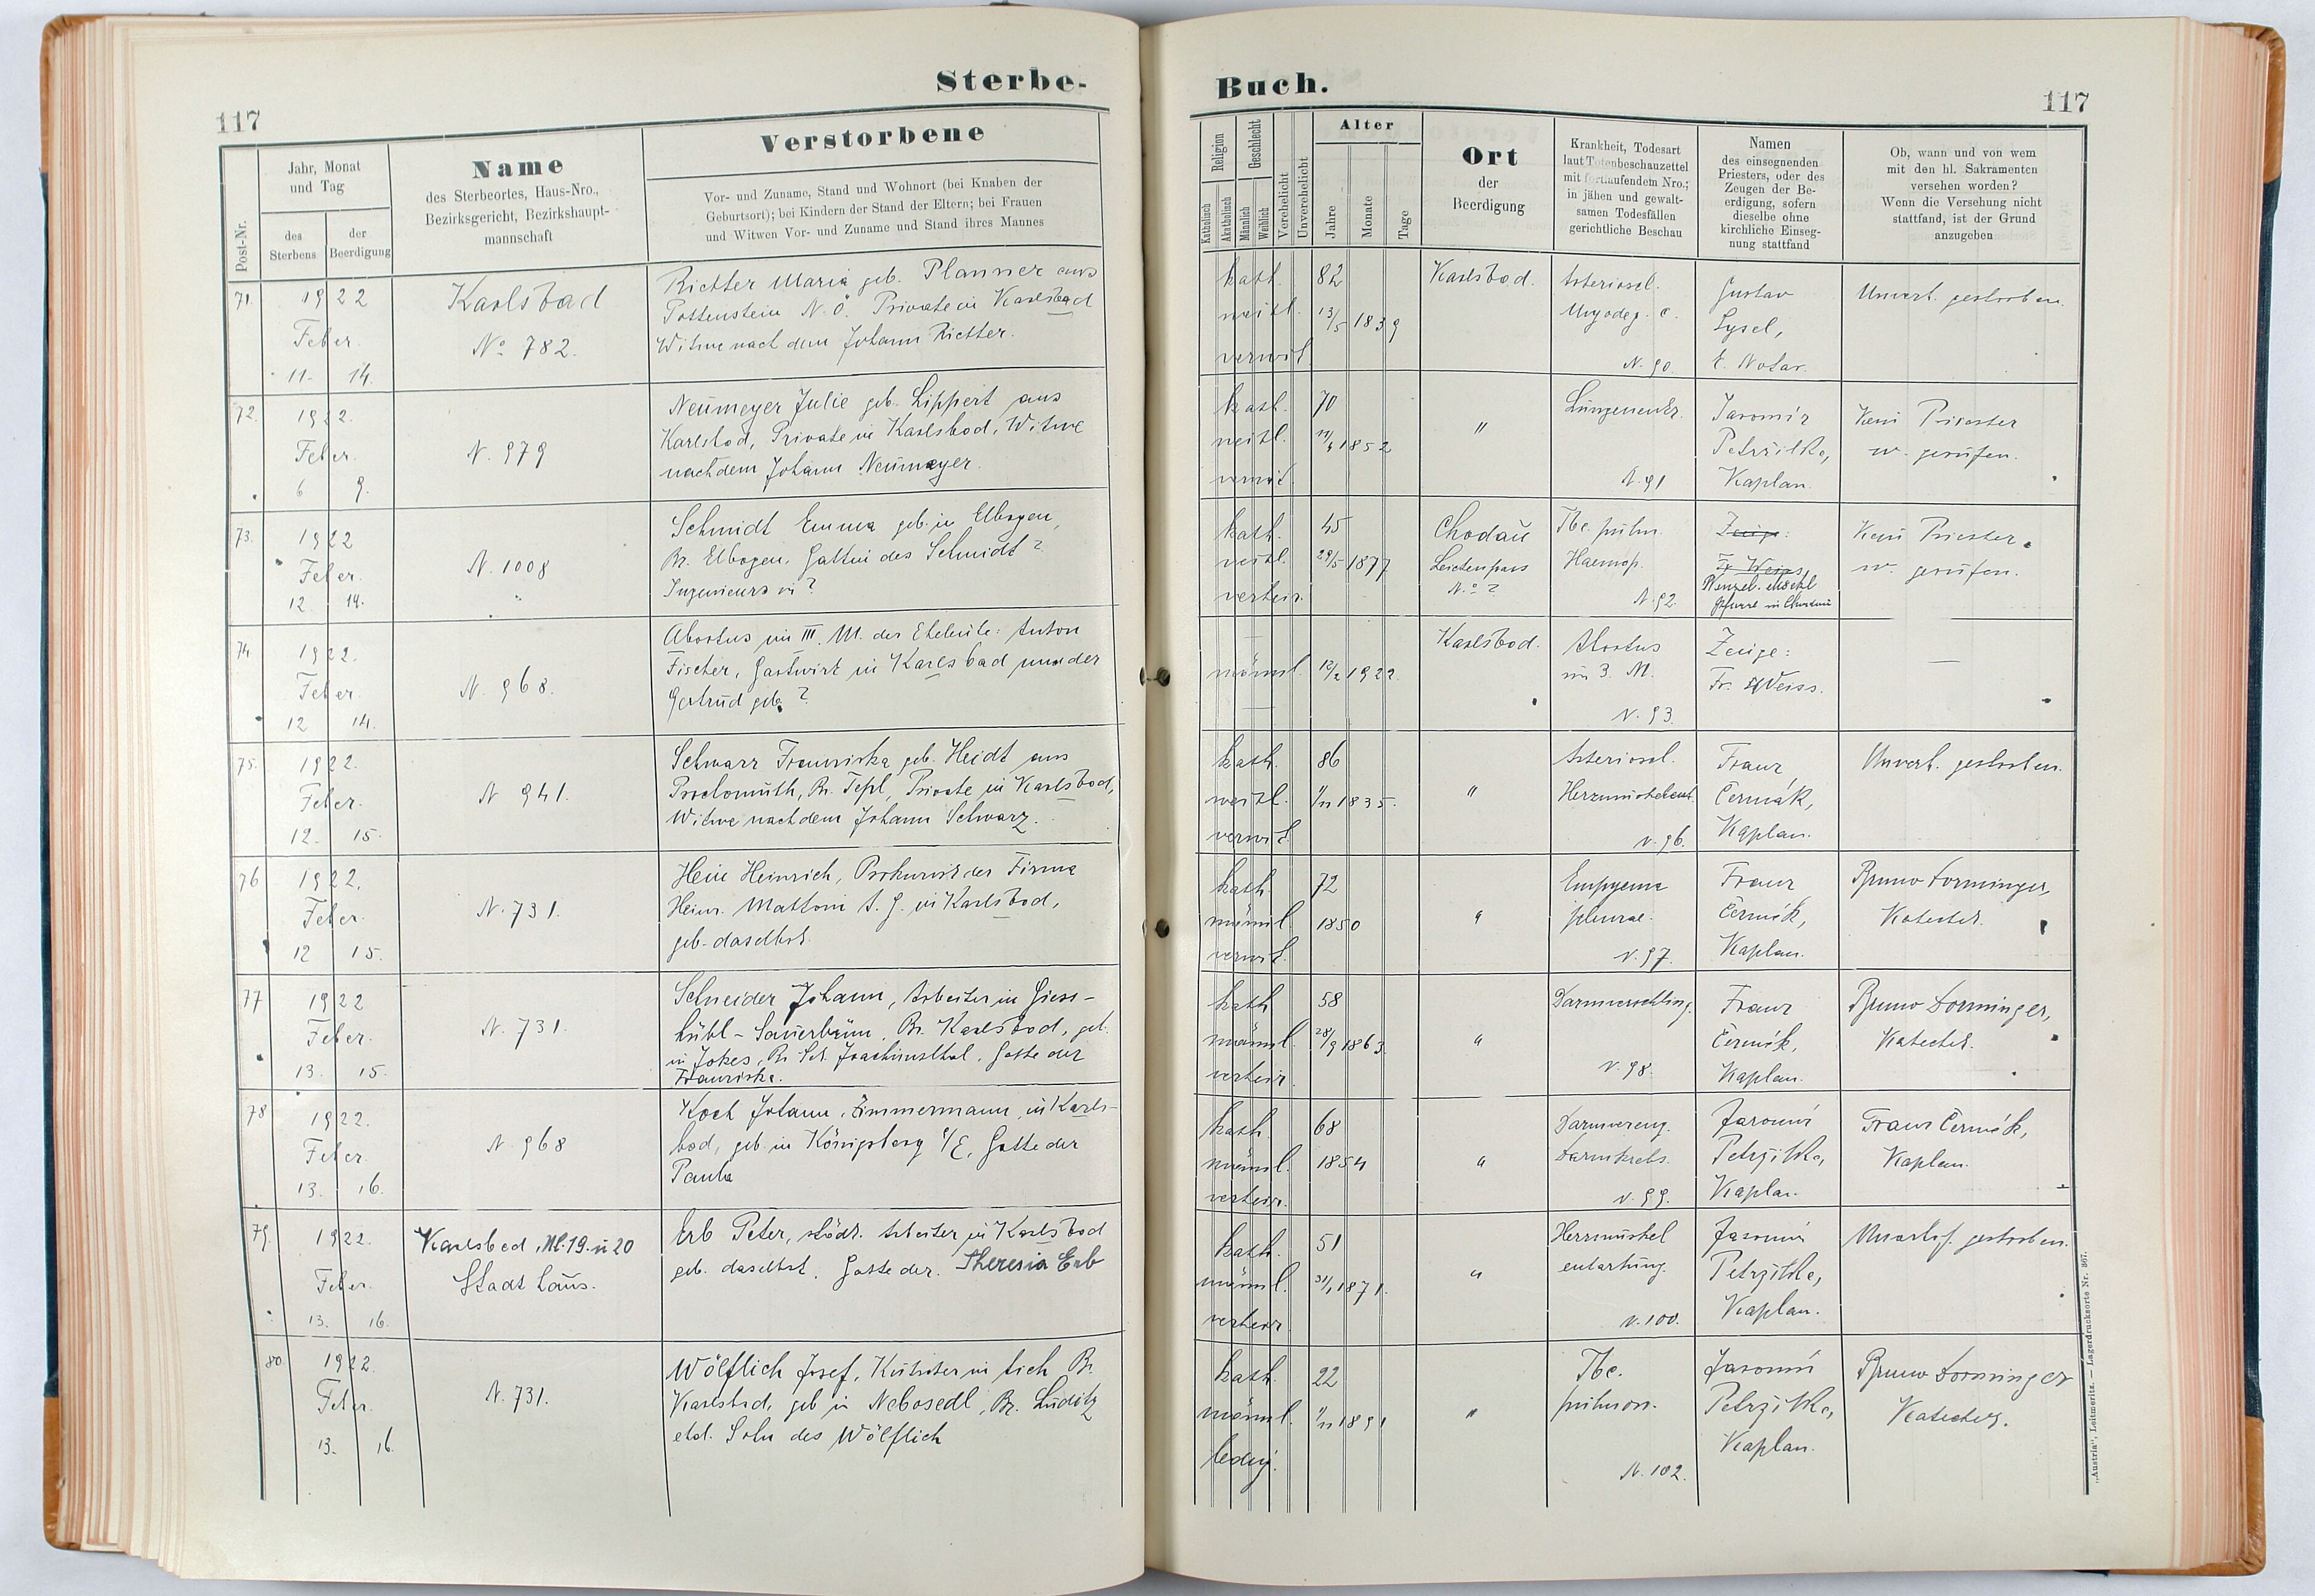 Sterbe-
117
Post-Nr.
Jahr, Monat
und Tag
des
Sterbens
der
Beerdigung
Name
des Sterbeortes, Haus-Nro.,
Bezirksgericht, Bezirkshaupt-
mannschaft
Verstorbene
Vor- und Zuname, Stand und Wohnort (bei Knaben der
Geburtsort); bei Kindern der Stand der Eltern; bei Frauen
und Witwen Vor- und Zuname und Stand ihres Mannes
71.
1922
Feber.
11. 14.
Karlsbad
No 782.
Richter Maria geb. Planner aus
Pottenstein N. Ö. Private in Karlsbad
Witwe nach dem Johann Richter.
72.
1922.
Feber.
6 9.
N. 979
Neumeyer Julie geb. Lippert aus
Karlsbad, Private in Karlsbad, Witwe
nach dem Johann Neumeyer.
73.
1922
Feber.
12. 14.
N. 1008
Schmidt Emma geb. in Elbogen,
Br. Elbogen, Gattin des Schmidt ?
Ingenieurs in ?
74.
1922.
Feber.
12 14.
N. 968.
Abortus im III. M. der Eheleute: Anton
Fischer, Gastwirt in Karlsbad und der
Gertrud geb. ?
75.
1922.
Feber.
12. 15.
N 941.
Schwarz Franziska geb. Heidt aus
Br. Tepl, Private in Karlsbad,
Witwe nach dem Johann Schwarz.
76
1922.
Feber.
12 15.
N. 731.
Hein Heinrich, Prokurist der Firma
Heinr. Mattoni A. G. in Karlsbad,
geb. daselbst.
77
1922
Feber.
13. 15.
N. 731.
Schneider Johann, Arbeiter in Giess-
hübl - Sauerbrunn, Br. Karlsbad, geb.
in Jokes, Br. St. Joachimsthal, Gatte der
Franziska.
78
1922.
Feber.
13. 16.
N. 968
Koch Johann, Zimmermann in Karls-
bad, geb. in Königsberg a/E, Gatte der
Paula
79.
1922.
Feber.
13. 16.
Karlsbad, Nr. 19. u 20
Stadthaus.
Erb Peter, städt. Arbeiter in Karlsbad
geb. daselbst, Gatte der. Theresia Erb
80.
1922.
Feber.
13. 16.
N. 731.
Wölflich Josef, Kutscher in Aich Br.
Karlsbad, geb in Nebosedl, Br. Luditz
ehel. Sohn des Wölflich
Buch.
117
Religion
Katholisch
Akatholisch
Geschlecht
Männlich
Weiblich
Verehelicht
Unverehelicht
Alter
Jahre
Monate
Tage
Ort
der
Beerdigung
Krankheit, Todesart
laut Totenbeschauzettel
mit fortlaufendem Nro.;
in jähen und gewalt-
samen Todesfällen
gerichtliche Beschau
Namen
des einsegnenden
Priesters, oder des
Zeugen der Be-
erdigung, sofern
dieselbe ohne
kirchliche Einseg-
nung stattfand
Ob, wann und von wem
mit den hl. Sakramenten
versehen worden?
Wenn die Versehung nicht
stattfand, ist der Grund
anzugeben
kath.
weibl.
verwit.
82
13/5 1839
Karlsbad.
Arteriosel.
Myodeg. c.
N. 90.
Gustav
Lysel,
E. Notar.
Unvert. gestorben.
kath.
weibl.
verwit.
70
1852
"
Lungenentz.
N. 91
Jaromír
Petržilka,
Kaplan.
Kein Priester
w. gerufen.
kath.
weibl.
verheir.
45
29/5 1877
Chodau
Leichenpass
N.o ?
Tbc. pulm.
Haemop.
N. 92
Zeuge:
Fr. Weiss
Wenzel
Pfarre in Chodau
Kein Priester
w. gerufen.
männl.
12/2 1922.
Karlsbad.
Abortus
im 3. M.
N. 93.
Zeuge:
Fr. Weiss.
—
kath.
weibl.
verwit.
86
1/11 1835.
"
Arteriosel.
Herzmuskelent.
N. 96.
Franz
Čermák,
Kaplan.
Unvert. gestorben.
kath.
männl.
verwit.
72
1850
"
Empyema
pleurae.
N. 97.
Franz
Čermák,
Kaplan.
Bruno Dorminger,
Katechet.
kath
männl.
verheir.
58
28/9 1863.
"
Darmverschling.
N. 98.
Franz
Čermák,
Kaplan.
Bruno Dorminger,
Katechet.
kath.
männl.
verheir.
68
1854
"
Darmvereng.
Darmkrebs.
N. 99.
Jaromír
Petržilka,
Kaplan.
Franz Čermák,
Kaplan.
kath.
männl.
verheir.
51
31/1 1871.
"
Herzmuskel
entartung.
N. 100.
Jaromír
Petržilka,
Kaplan.
gestorben.
kath.
männl.
ledig.
22
1/11 1891
"
Tbc.
pulmon.
N. 102.
Jaromír
Petržilka,
Kaplan.
Bruno Dorminger
Katechet.
„Austria", Leitmeritz. — Lagerdrucksorte Nr. 367.